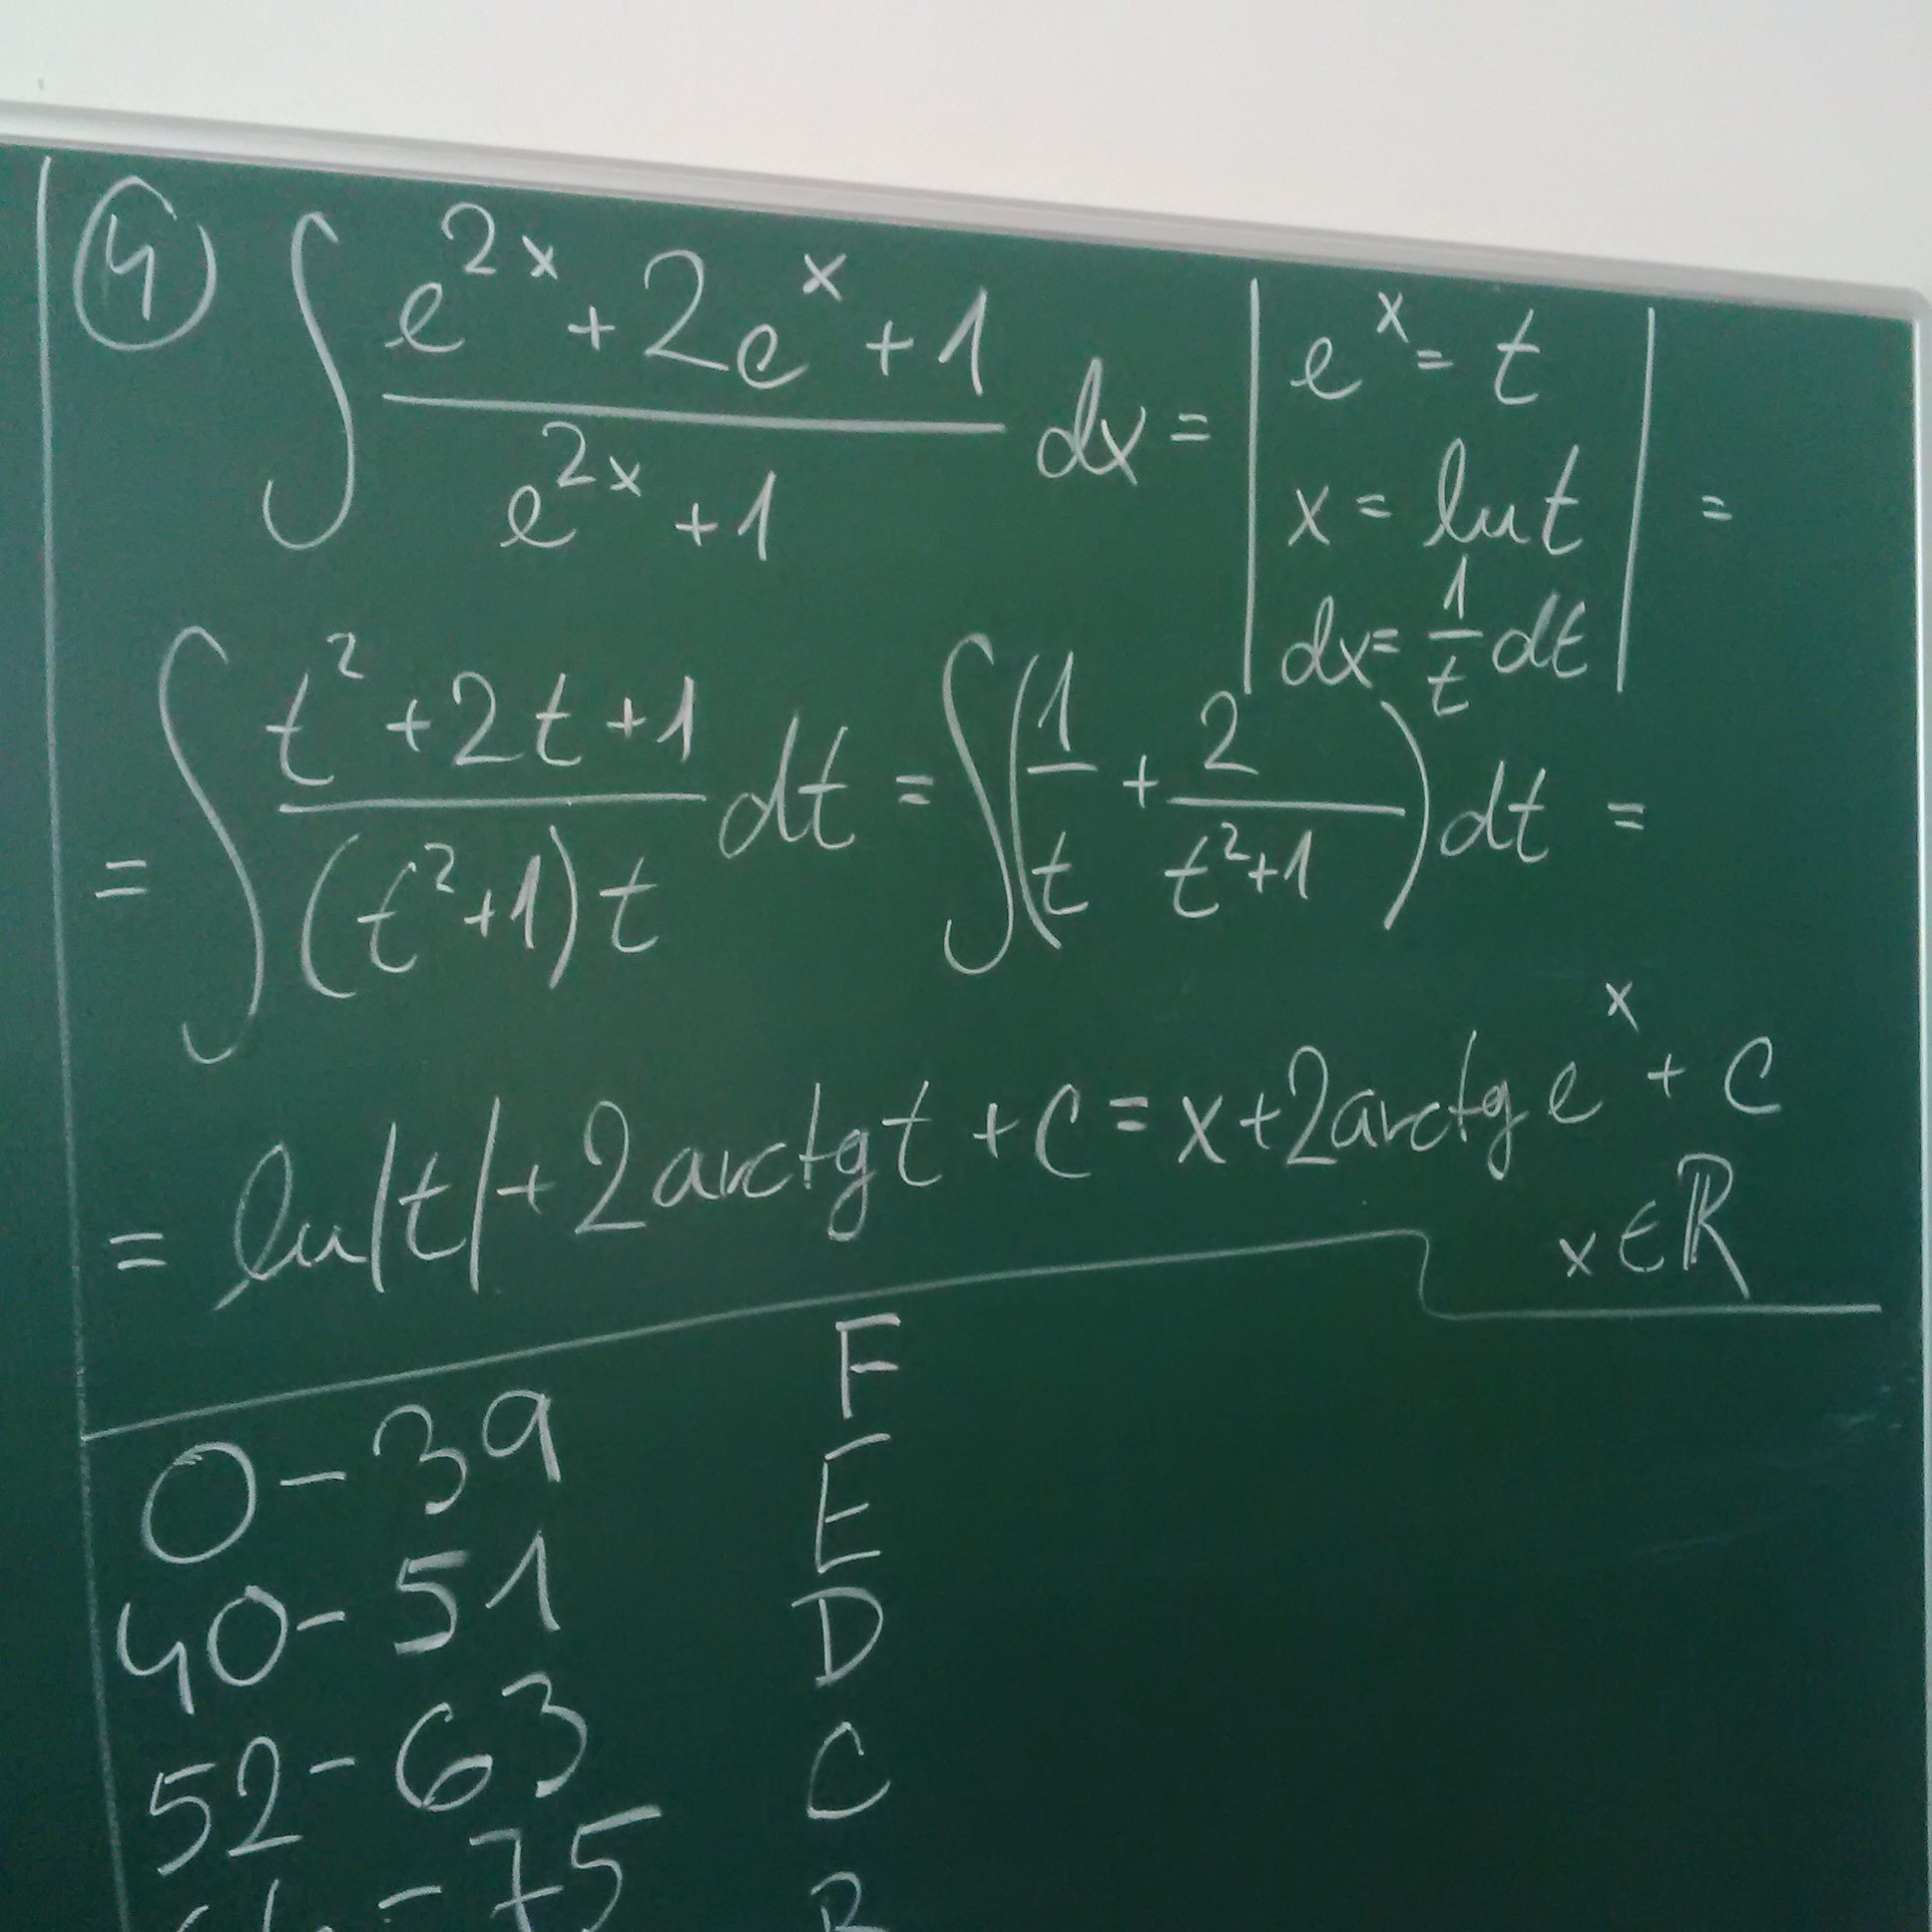 ④ ∫ (e^{2x} + 2e^x + 1)/(e^{2x} + 1) dx = | e^x = t
x = ln t
dx = 1/t dt | =
= ∫ (t² + 2t + 1)/((t² + 1) t) dt = ∫ (1/t + 2/(t² + 1)) dt =
= ln|t| + 2 arctg t + C = x + 2 arctg e^x + C
x ∈ ℝ
0 - 39 F
40 - 51 E
52 - 63 D
- 75 C